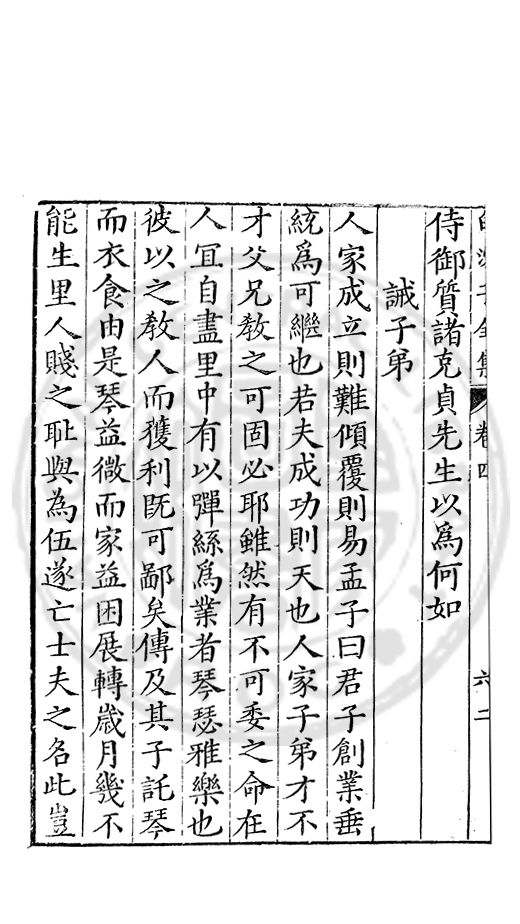 卷四
六二
侍御質諸克貞先生以爲何如
誡子弟
人家成立則難傾覆則易孟子曰君子創業垂
統爲可繼也若夫成功則天也人家子弟才不
才父兄教之可固必耶雖然有不可委之命在
人冝自盡里中有以彈絲爲業者琴瑟雅樂也
彼以之教人而獲利旣可鄙矣傳及其子託琴
而衣食由是琴益微而家益困展轉歲月幾不
能生里人賤之耻與為伍遂亡士夫之名此豈